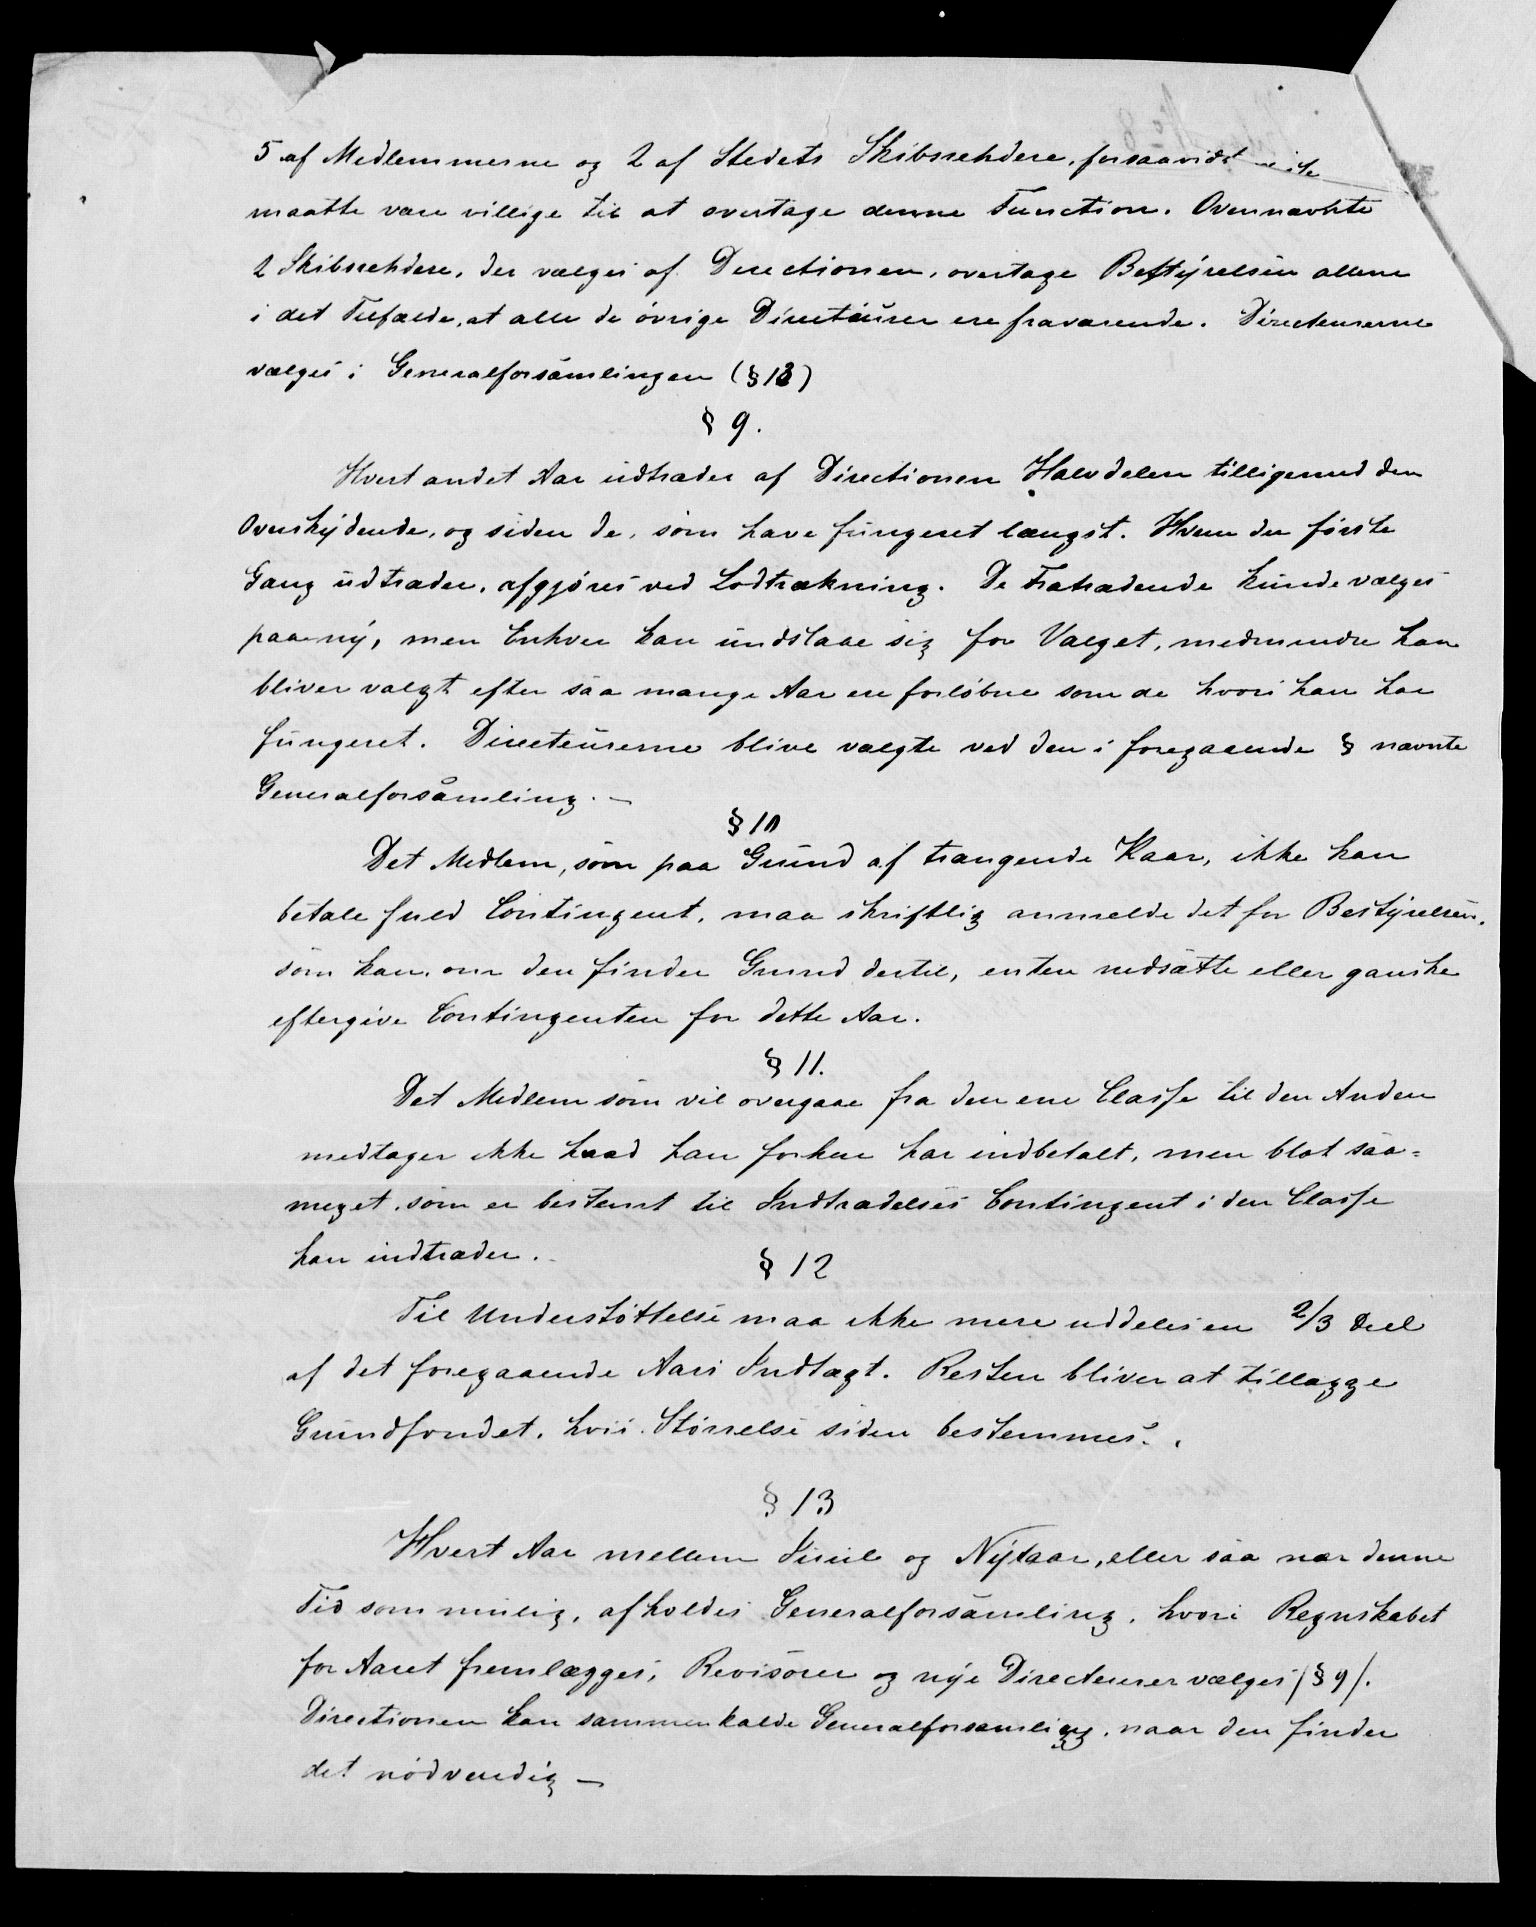 5 af Medlemmerne og 2 af Stedets Skibsrehdere, forsaavidt
maatte være villige til at overtage denne Function. Ovennævnte
2 Skibsrehdere, der vælges af Directionen, overtage Bestyrelsen allene
i det Tilfælde, at alle de øvrige Directeurer ere fraværende. Directeurerne
vælges i Generalforsamlingen (§ 13)
§ 9.
Hvert andet Aar udtræder af Directionen Halvdelen tilligemed den
Overskydende, og siden de, som have fungeret længst. Hvem der første
Gang udtræder, afgjøres ved Lodtrækning. De Fratrædende kunde vælges
paa ny, men Enhver kan undslaae sig for Valget, medmindre han
bliver valgt efter saa mange Aar ere forløbne som de hvori han har
fungeret. Directeurerne blive valgte ved den i foregaaende § nævnte
Generalforsamling. —
§ 10
Det Medlem, som paa Grund af trængende Kaar, ikke kan
betale fuld Contingent, maa skriftlig anmelde det for Bestyrelsen,
som kan, om den finder Grund dertil, enten nedsætte eller ganske
eftergive Contingenten for dette Aar.
§ 11.
Det Medlem som vil overgaae fra den ene Classe til den Anden
medtager ikke hvad han forhen har indbetalt, men blot saa=
meget, som er bestemt til Indtrædelses Contingent i den Classe
han indtræder.
§ 12
Til Understøttelse maa ikke mere uddeles en 2/3 Deel
af det foregaaende Aars Indtægt. Resten bliver at tillægge
Grundfondet, hvis Størrelse siden bestemmes.
§ 13
Hvert Aar mellem Juul og Nytaar, eller saa nær denne
Tid som mulig, afholdes Generalforsamling, hvori Regnskabet
for Aaret fremlægges, Revisorer og nye Directeurer vælges (§ 9).
Directionen kan sammenkalde Generalforsamling, naar den finder
det nødvendig —